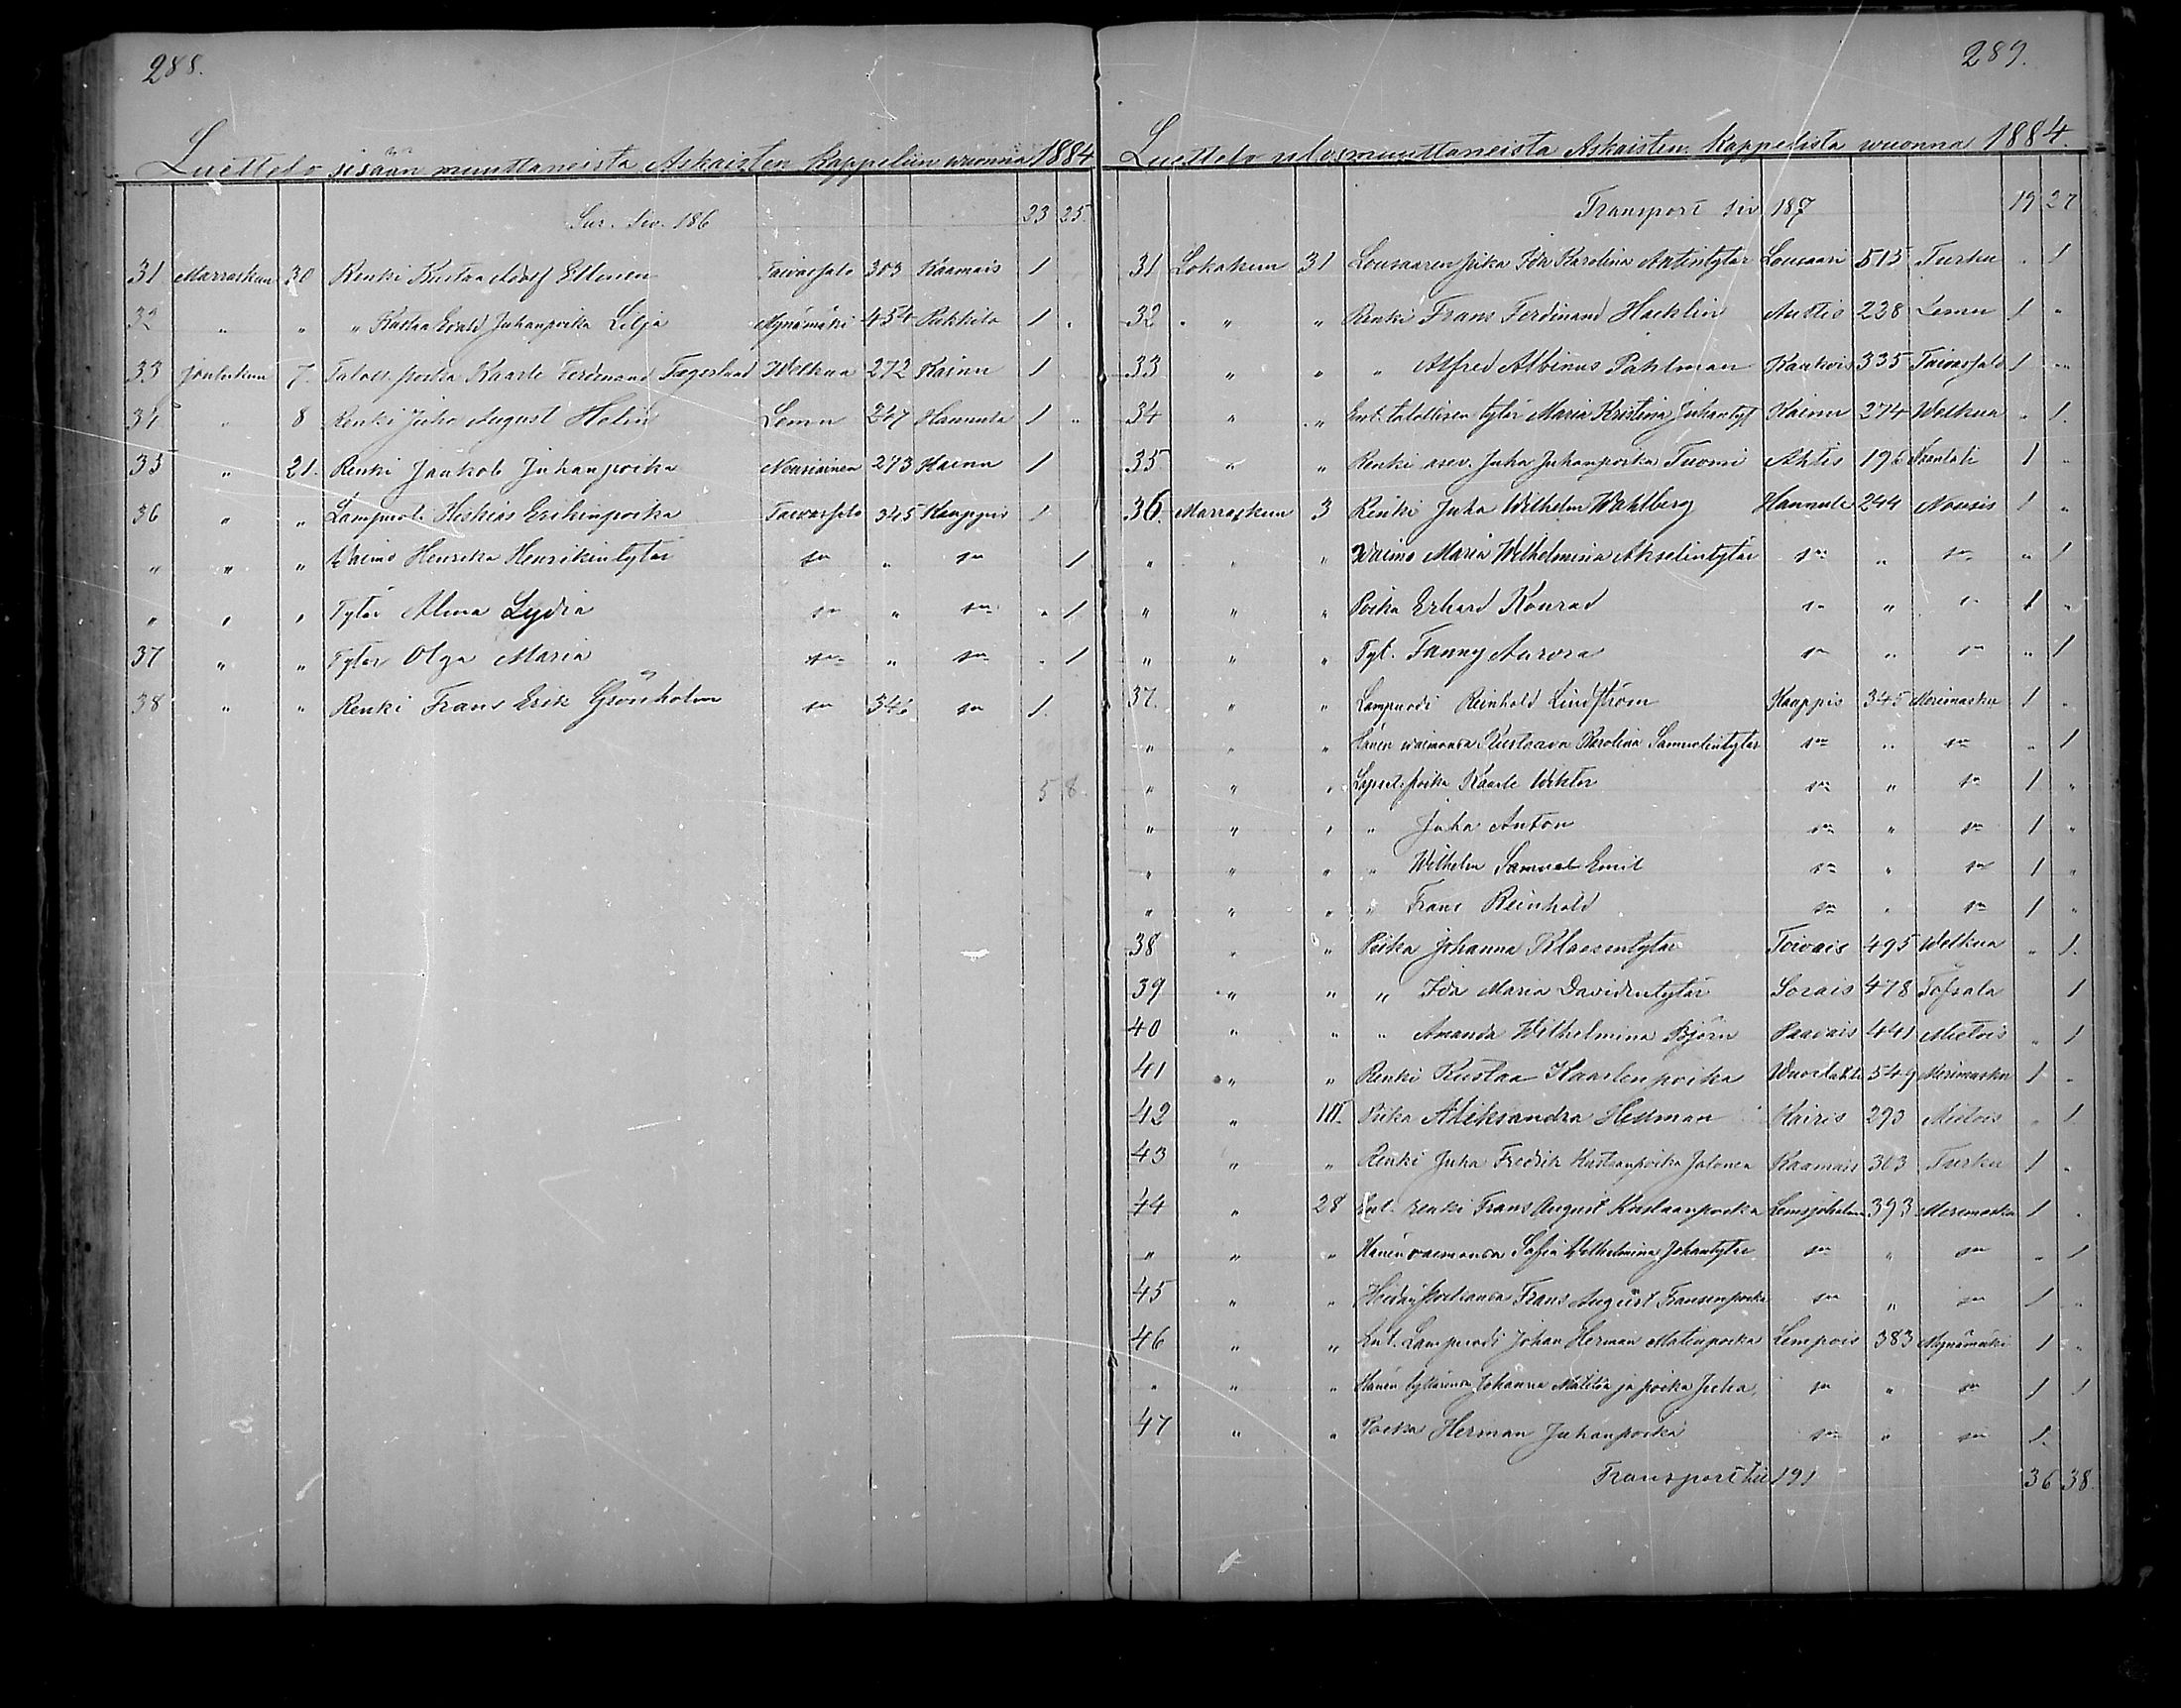 288.
Luettelo sisään muuttaneista Askaisten Kappeliin wuonna 1884
Siv. 186 23 25
31 Marraskuu 30 Renki Kustaa Adolf Ellonen Taivassalo 303 Kaamais 1
32 " " " Kustaa Evald Juhanpoika Lilja Mynämäki 454 Pikkilä 1 "
33 Joulukuu 7. Taloll. poika Kaarle Ferdinand Fagerlund Welkua 272 Kainu 1
34 " 8 Renki Juho August Helin Lemu 247 Hannula 1 "
35 " 21. Renki Jaakob Juhanpoika Nousiainen 273 Kainu 1
36 " " Lampuoti Heskias Erikinpoika Taivassalo 345 Kauppis 1
" " " Waimo Henrika Henrikintytär sm " sm 1
" " " Tytär Alma Lydia sm " sm " 1
37 " " Tytär Olga Maria sm " sm " 1
38 " " Renki Frans Erik Grönholm sm 346 sm 1.
5 8.
289.
Luettelo ulosmuuttaneista Askaisten Kappelista wuonna 1884.
Transport siv 187 19 27
31 Lokakuu 31 Lousaaren piika Ida Karolina Antintytär Lousaari 515 Turku " 1
32 " " " Renki Frans Ferdinand Hacklin Austis 228 Lemu 1 "
33 " " " Alfred Albinus Pahlman Kaukois 335 Taivassalo 1 "
34 " " Ent. talollisen tytär Maria Kristina Juhantyt Kainu 274 Welkua " 1.
35 " " Renki asev. Juha Juhanpoika Tuomi Ahtis 196 Naantali 1 "
36. Marraskuu 3 Renki Juha Wilhelm Wahlberg Hannula 244 Nousis 1 "
" " " Waimo Maria Wilhelmina Akselintytär sm " sm " 1
" " " Poika Erhard Konrad sm " " 1 "
" " " Tyt. Fanny Aurora sm " sm " 1
37. " " Lampuodi Reinhold Lindström Kauppis 345 Merimasku 1 "
" " " Hänen waimonsa Kustaava Karolina Samuelintytär sm " sm " 1
" " " Lapset: poika Kaarle Wiktor sm " sm 1 "
" " " " Juha Anton sm " sm 1 "
" " " " Wilhelm Samuel Emil sm " sm 1 "
" " " " Frans Reinhold sm " sm 1 "
38 " " Piika Johanna Klaesentytär Toivais 495 Welkua " 1.
39 " " " Ida Maria Davidintytär Sorais 478 Töfsala 1
40 " " " Amanda Wilhelmina Björn Paavais 441 Mietois " 1
41 " " Renki Kustaa Kaarlenpoika 549 Merimasku 1 "
42 " Piika Aleksandra Hellman Kairis 293 Mietois " 1.
43 " " Renki Juha Fredrik Kustaanpoika Jalonen Kaamais 303 Turku 1 "
44 " 28 Ent. renki Frans August Kustaanpoika Lemsjöholm 393 Merimasku 1 "
" " " Hänen vaimonsa Sofia Wilhelmina Johantytär sm " sm " 1
45 " " Heidän poikansa Frans August Fransenpoika sm " sm 1 "
46 " " Ent. Lampuodi Johan Herman Matinpoika Lempois 383 Mynämäki 1 "
" " " Hänen tyttärensä Johanna Matilda ja poika Juha sm " sm 1 1
47 " " Poika Herman Juhanpoika sm " sm 1.
Transport siv 191 36 38.